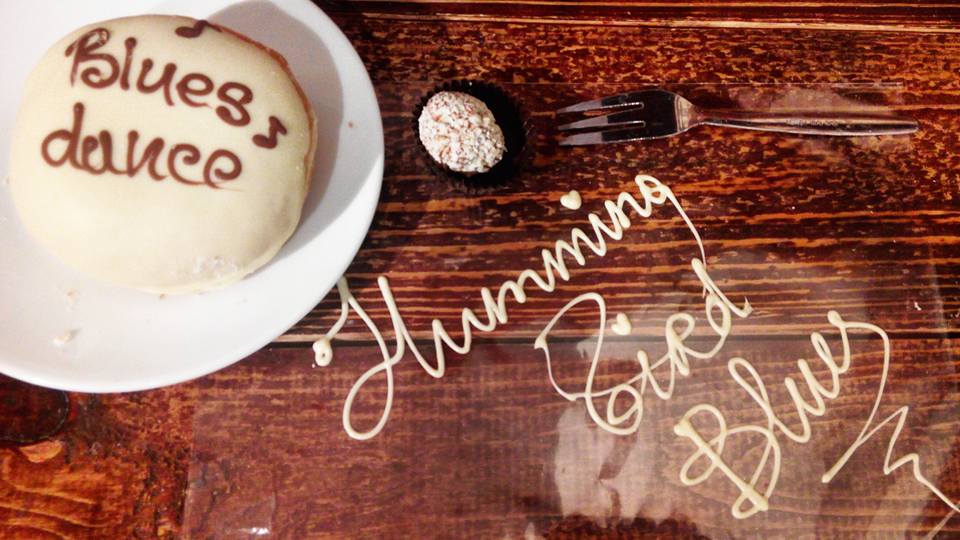 Blues
dance
Humming
Bird
Blues